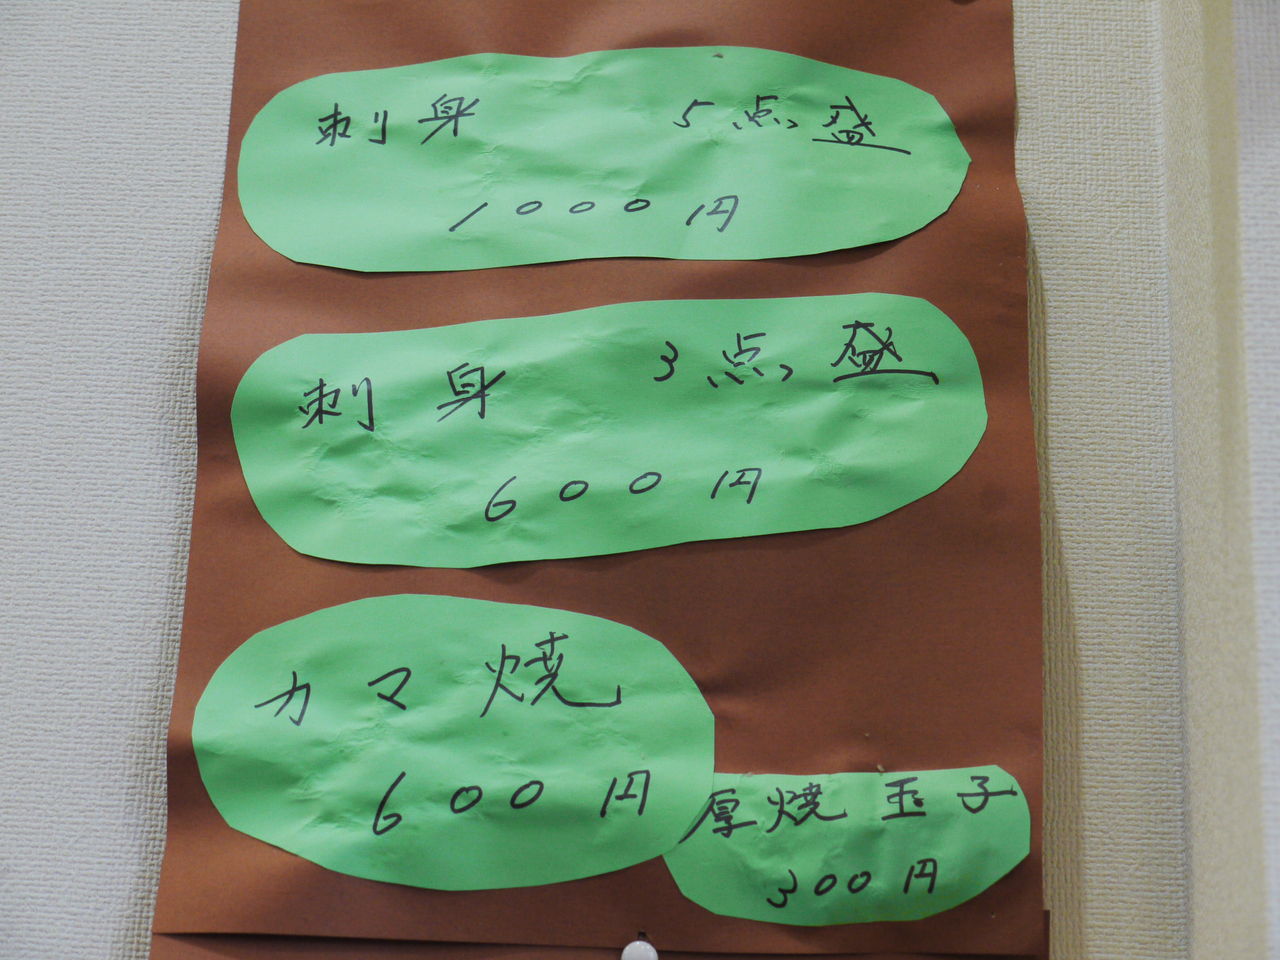 刺身 5点盛
1000円
刺身 3点盛
600円
カマ焼
600円
厚焼玉子
300円